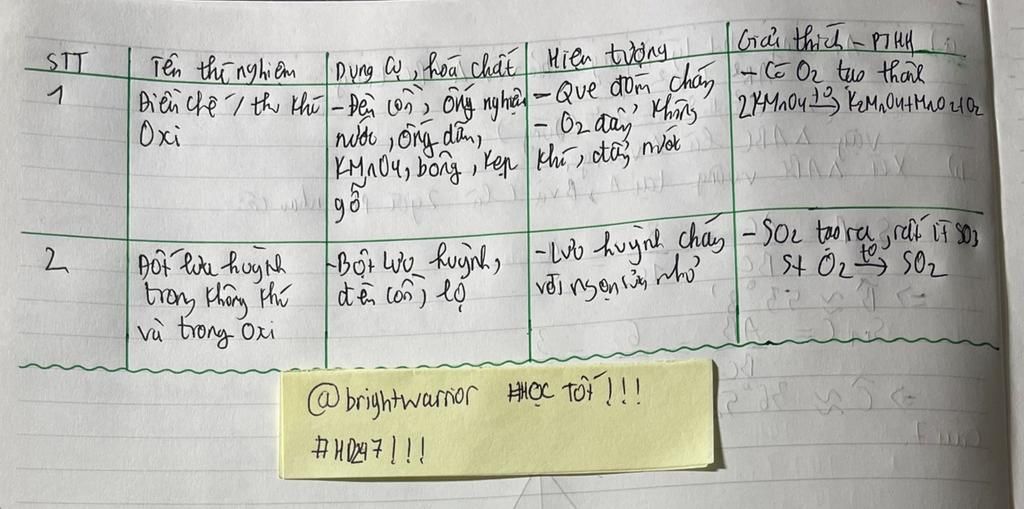 STT
Tên thí nghiệm
Dụng cụ, hoá chất
Hiện tượng
Giải thích - PTHH
1
Điều chế / thu khí
Oxi
- Đèn cồn, ống nghiệm
nước, ống dẫn,
KMnO4, bông, kẹp
gỗ
- Que đóm cháy
- O2 đẩy không
khí, đẩy nước
- Có O2 tạo thành
2KMnO4 t0→ K2MnO4+MnO2+O2
2
Đốt lưu huỳnh
trong không khí
và trong Oxi
-Bột lưu huỳnh,
đèn cồn, lọ
-Lưu huỳnh cháy
với ngọn lửa nhỏ
- SO2 tạo ra, rất ít SO3
S+ O2 t0→ SO2
@brightwarrior #HỌC TỐT!!!
#HD247!!!